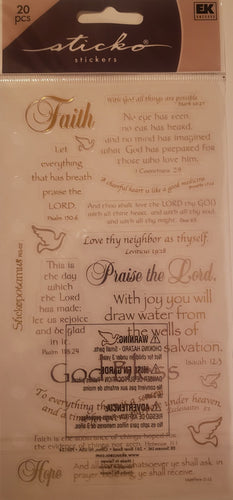 20
pcs
EK
SUCCESS
sticko®
stickers
Faith
With God all things are possible
Mark 10:27
No eye has seen,
no ear has heard,
and no mind has imagined
what God has prepared for
those who love him.
1 Corinthians 2:9
Let
everything
that has breath
praise the
LORD.
Psalm 150:6
A cheerful heart is like a good medicine.
And thou shalt love the LORD thy GOD
with all thine heart, and with all thy soul,
and with all thy might.
Love thy neighbor as thyself.
Leviticus 19:18
Stickopotamus
This is
the day
which the
Lord has
made;
let us rejoice
and be glad
in it.
Psalm 118:24
Praise the Lord.
With joy you will
draw water from
the wells of
salvation.
Isaiah 12:3
God Bless
WARNING
ADVERTENCIA
To everything there is a
under heaven.
Faith is the substance of things hoped
Hope
And all whatsoever ye shall ask in
prayer
receive.